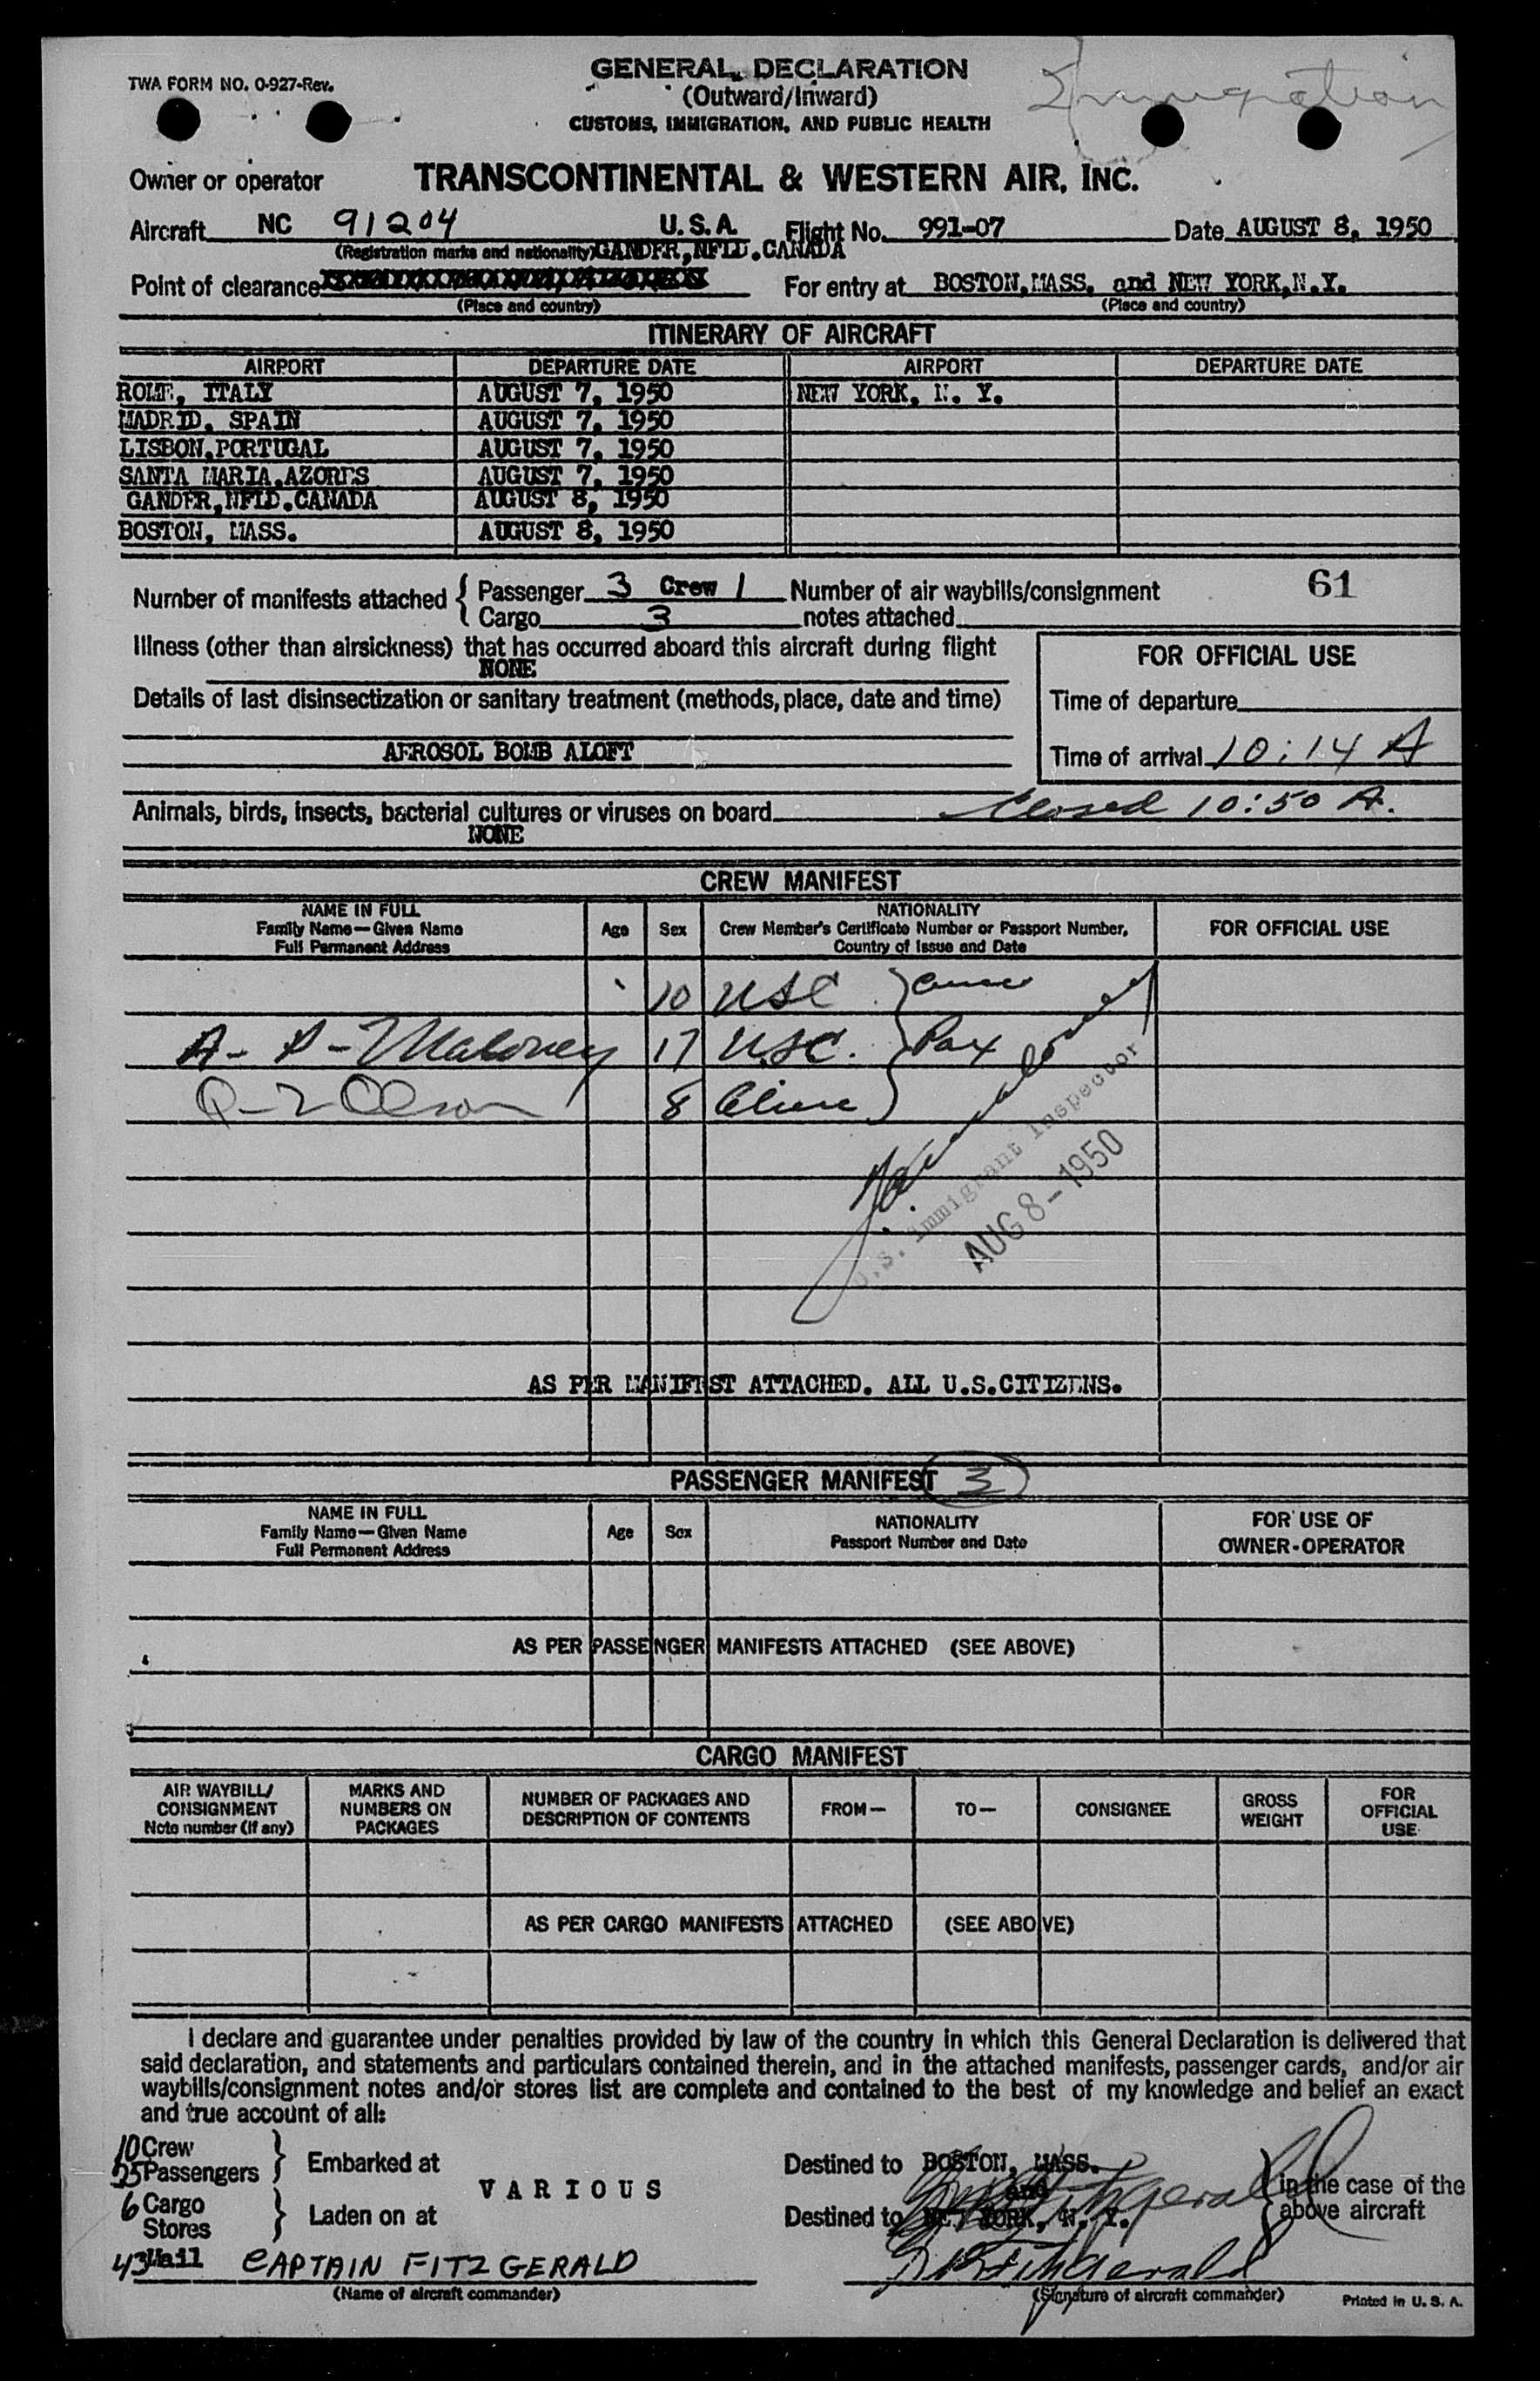 Immigration
TWA FORM NO. O-927-Rev.
GENERAL DECLARATION
(Outward/Inward)
CUSTOMS, IMMIGRATION, AND PUBLIC HEALTH
Owner or operator TRANSCONTINENTAL & WESTERN AIR, INC.
Aircraft NC 91204 U.S.A. Flight No. 991-07 Date AUGUST 8, 1950
(Registration marks and nationality) GANDER, NFLD. CANADA
Point of clearance For entry at BOSTON, MASS. and NEW YORK, N.Y.
(Place and country) (Place and country)
ITINERARY OF AIRCRAFT
AIRPORT DEPARTURE DATE AIRPORT DEPARTURE DATE
ROME, ITALY AUGUST 7, 1950 NEW YORK, N. Y.
MADRID, SPAIN AUGUST 7, 1950
LISBON, PORTUGAL AUGUST 7, 1950
SANTA MARIA, AZORES AUGUST 7, 1950
GANDER, NFLD. CANADA AUGUST 8, 1950
BOSTON, MASS. AUGUST 8, 1950
Number of manifests attached { Passenger 3 Crew 1 Number of air waybills/consignment 61
Cargo 3 notes attached
Illness (other than airsickness) that has occurred aboard this aircraft during flight
NONE
FOR OFFICIAL USE
Details of last disinsectization or sanitary treatment (methods, place, date and time)
Time of departure
AEROSOL BOMB ALOFT
Time of arrival 10:14 A
Closed 10:50 A.
Animals, birds, insects, bacterial cultures or viruses on board
NONE
CREW MANIFEST
NAME IN FULL
Family Name—Given Name
Full Permanent Address
Age Sex
NATIONALITY
Crew Member's Certificate Number or Passport Number,
Country of Issue and Date
FOR OFFICIAL USE
10 USC
A- P- Maloney 17 USC. Pax
Olson 8
U.S. Immigrant Inspector
AUG 8-1950
AS PER MANIFEST ATTACHED. ALL U.S.CITIZENS.
PASSENGER MANIFEST 3
NAME IN FULL
Family Name—Given Name
Full Permanent Address
Age Sex
NATIONALITY
Passport Number and Date
FOR USE OF
OWNER-OPERATOR
AS PER PASSENGER MANIFESTS ATTACHED (SEE ABOVE)
CARGO MANIFEST
AIR WAYBILL/
CONSIGNMENT
Note number (if any)
MARKS AND
NUMBERS ON
PACKAGES
NUMBER OF PACKAGES AND
DESCRIPTION OF CONTENTS
FROM—
TO—
CONSIGNEE
GROSS
WEIGHT
FOR
OFFICIAL
USE
AS PER CARGO MANIFESTS ATTACHED (SEE ABOVE)
I declare and guarantee under penalties provided by law of the country in which this General Declaration is delivered that
said declaration, and statements and particulars contained therein, and in the attached manifests, passenger cards, and/or air
waybills/consignment notes and/or stores list are complete and contained to the best of my knowledge and belief an exact
and true account of all:
10 Crew
25 Passengers } Embarked at
VARIOUS
6 Cargo
Stores } Laden on at
43 Mail
Destined to BOSTON, MASS.
and
Destined to NEW YORK, N. Y.
in the case of the
above aircraft
CAPTAIN FITZGERALD
Fitzgerald
(Name of aircraft commander) (Signature of aircraft commander) Printed in U. S. A.